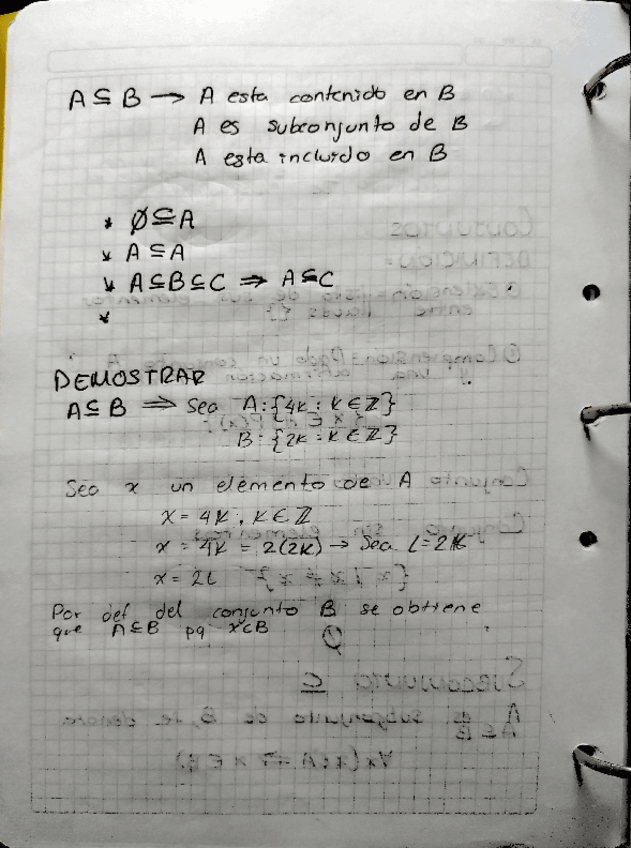 A ⊆ B → A esta contenido en B
A es subconjunto de B
A esta incluido en B
* ∅ ⊆ A
* A ⊆ A
* A ⊆ B ⊆ C ⇒ A ⊆ C
*
DEMOSTRAR
A ⊆ B ⇒ Sea A: {4k : k ∈ ℤ}
B: {2k : k ∈ ℤ}
Sea x un elemento de A
x = 4k, k ∈ ℤ
x = 4k = 2(2k) → Sea L = 2k
x = 2L
Por def del conjunto B se obtiene
que A ⊆ B pq x ∈ B